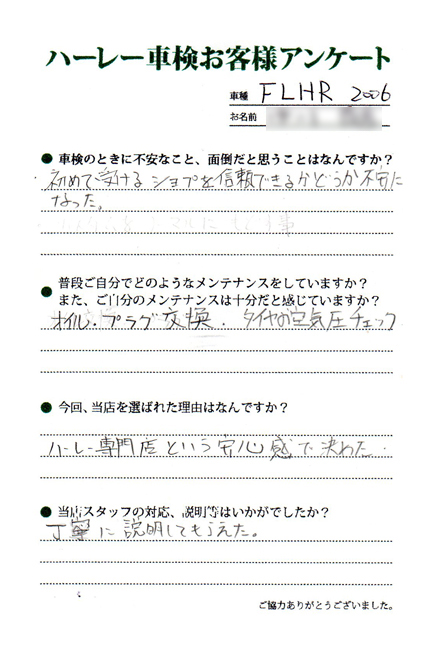 ハーレー車検お客様アンケート
車種 FLHR 2006
お名前
● 車検のときに不安なこと、面倒だと思うことはなんですか?
初めて受けるショプを信頼できるかどうか不安に
なった。
● 普段ご自分でどのようなメンテナンスをしていますか?
また、ご自分のメンテナンスは十分だと感じていますか?
オイル・プラグ交換・タイヤの空気圧チェック
● 今回、当店を選ばれた理由はなんですか?
ハーレー専門店という安心感で決めた.
● 当店スタッフの対応、説明等はいかがでしたか?
丁寧に説明してもらえた。
ご協力ありがとうございました。